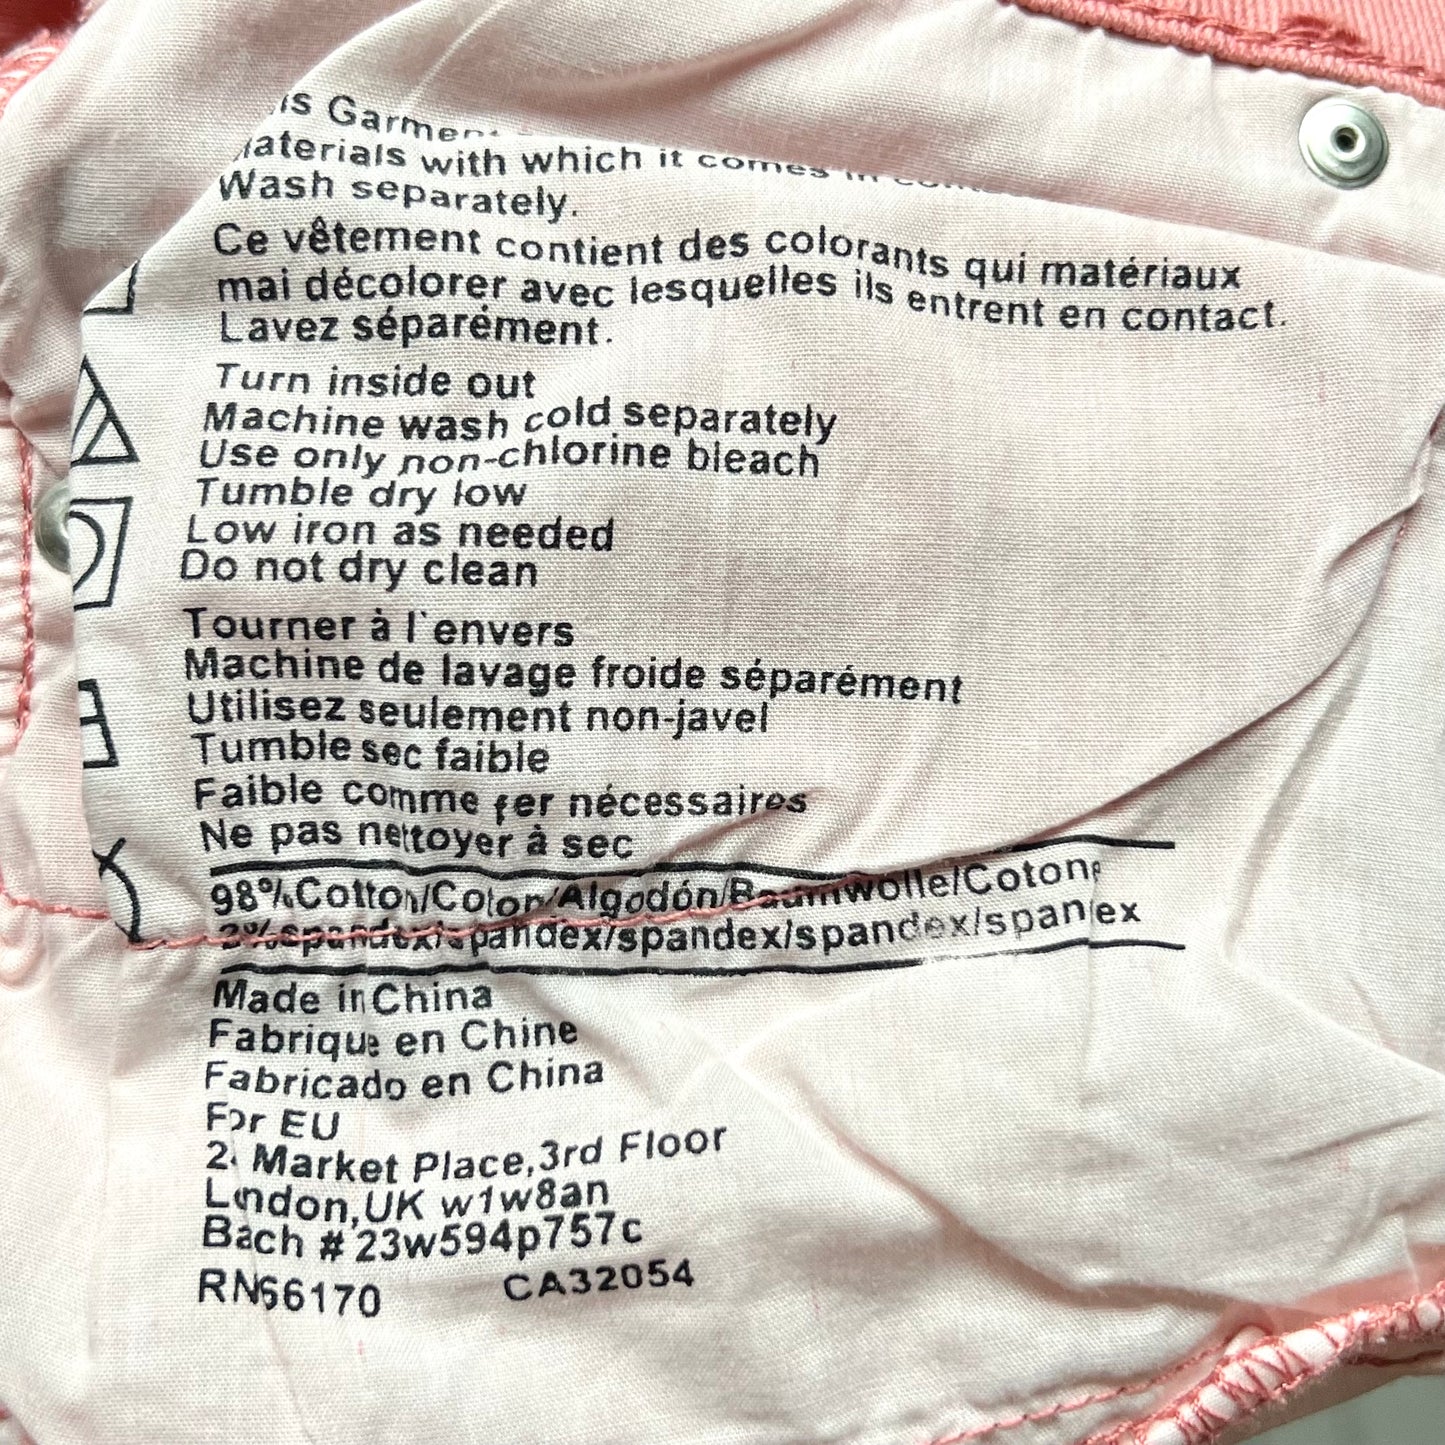 Garment
materials with which it comes in
Wash separately.
Ce vêtement contient des colorants qui matériaux
mai décolorer avec lesquelles ils entrent en contact.
Lavez séparément.
Turn inside out
Machine wash cold separately
Use only non-chlorine bleach
Tumble dry low
Low iron as needed
Do not dry clean
Tourner à l'envers
Machine de lavage froide séparément
Utilisez seulement non-javel
Tumble sec faible
Faible comme fer nécessaires
Ne pas nettoyer à sec
98%Cotton/Coton/Algodón/Baumwolle/Cotone
2%spandex/spandex/spandex/spandex/spandex
Made in China
Fabrique en Chine
Fabricado en China
For EU
Market Place,3rd Floor
London,UK w1w8an
Bach # 23w594p757c
RN66170 CA32054